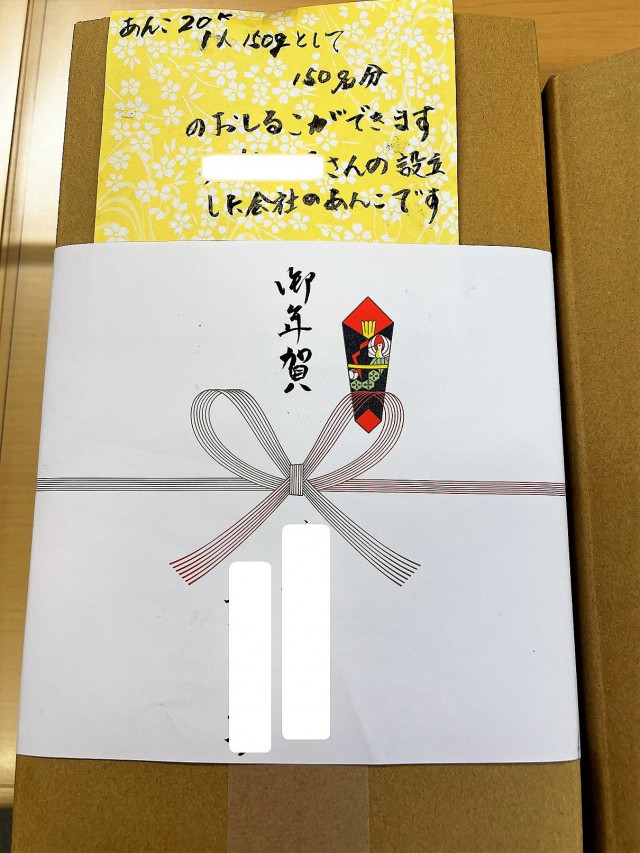 あんこ 20K
1人 150gとして
150名分
のおしるこができます
さんの設立
した会社のあんこです
御年賀